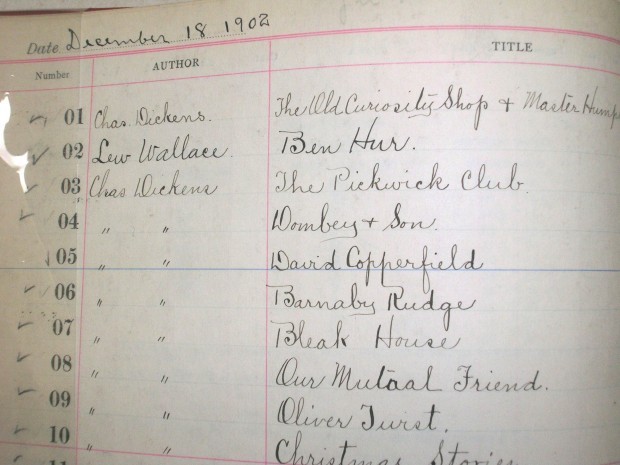 Date December 18 1902
Number AUTHOR TITLE
01 Chas. Dickens. The Old Curiosity Shop + Master Hump
02 Lew Wallace. Ben Hur.
03 Chas Dickens The Pickwick Club.
04 " " Dombey + Son.
05 " " David Copperfield
06 " " Barnaby Rudge
07 " " Bleak House
08 " " Our Mutual Friend.
09 " " Oliver Twist.
10 " " Christmas Stories
11